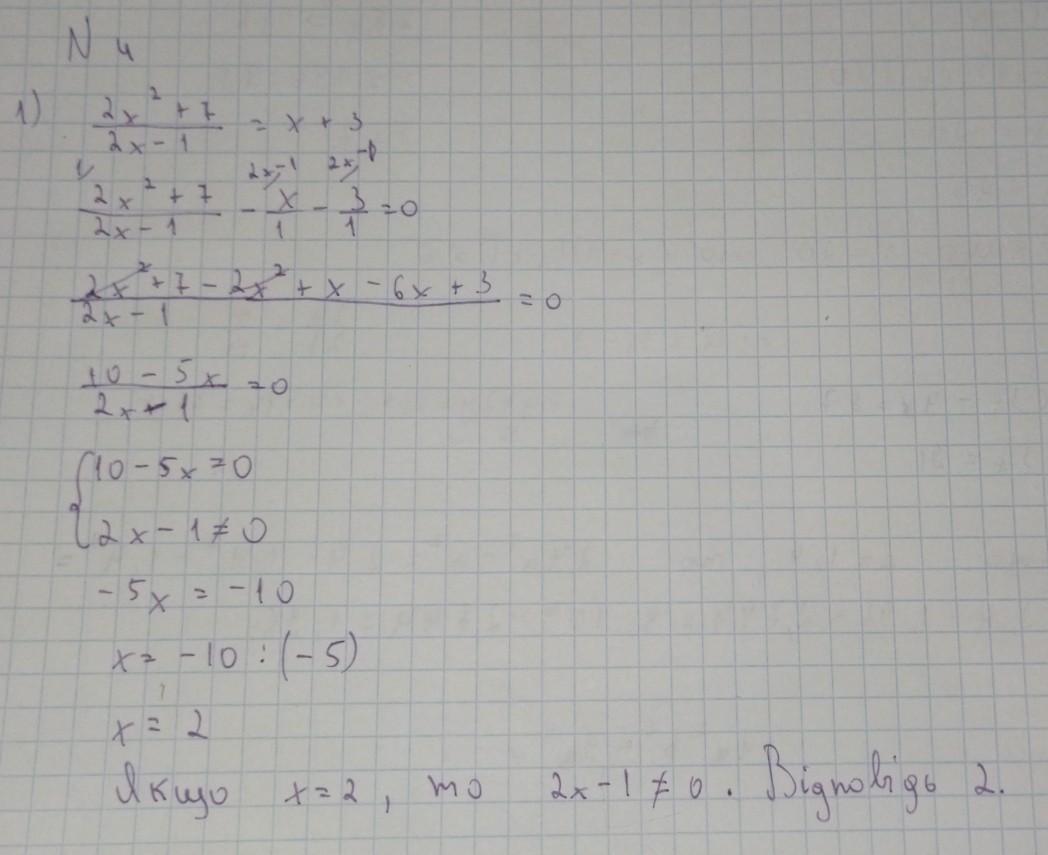 N 4
1) (2x² + 7)/(2x - 1) = x + 3
1 2x-1 2x-1
(2x² + 7)/(2x - 1) - x/1 - 3/1 = 0
(2x² + 7 - 2x² + x - 6x + 3)/(2x - 1) = 0
(10 - 5x)/(2x - 1) = 0
{10 - 5x = 0
2x - 1 ≠ 0
- 5x = -10
x = -10 : (-5)
x = 2
Якщо x = 2, то 2x - 1 ≠ 0. Відповідь 2.